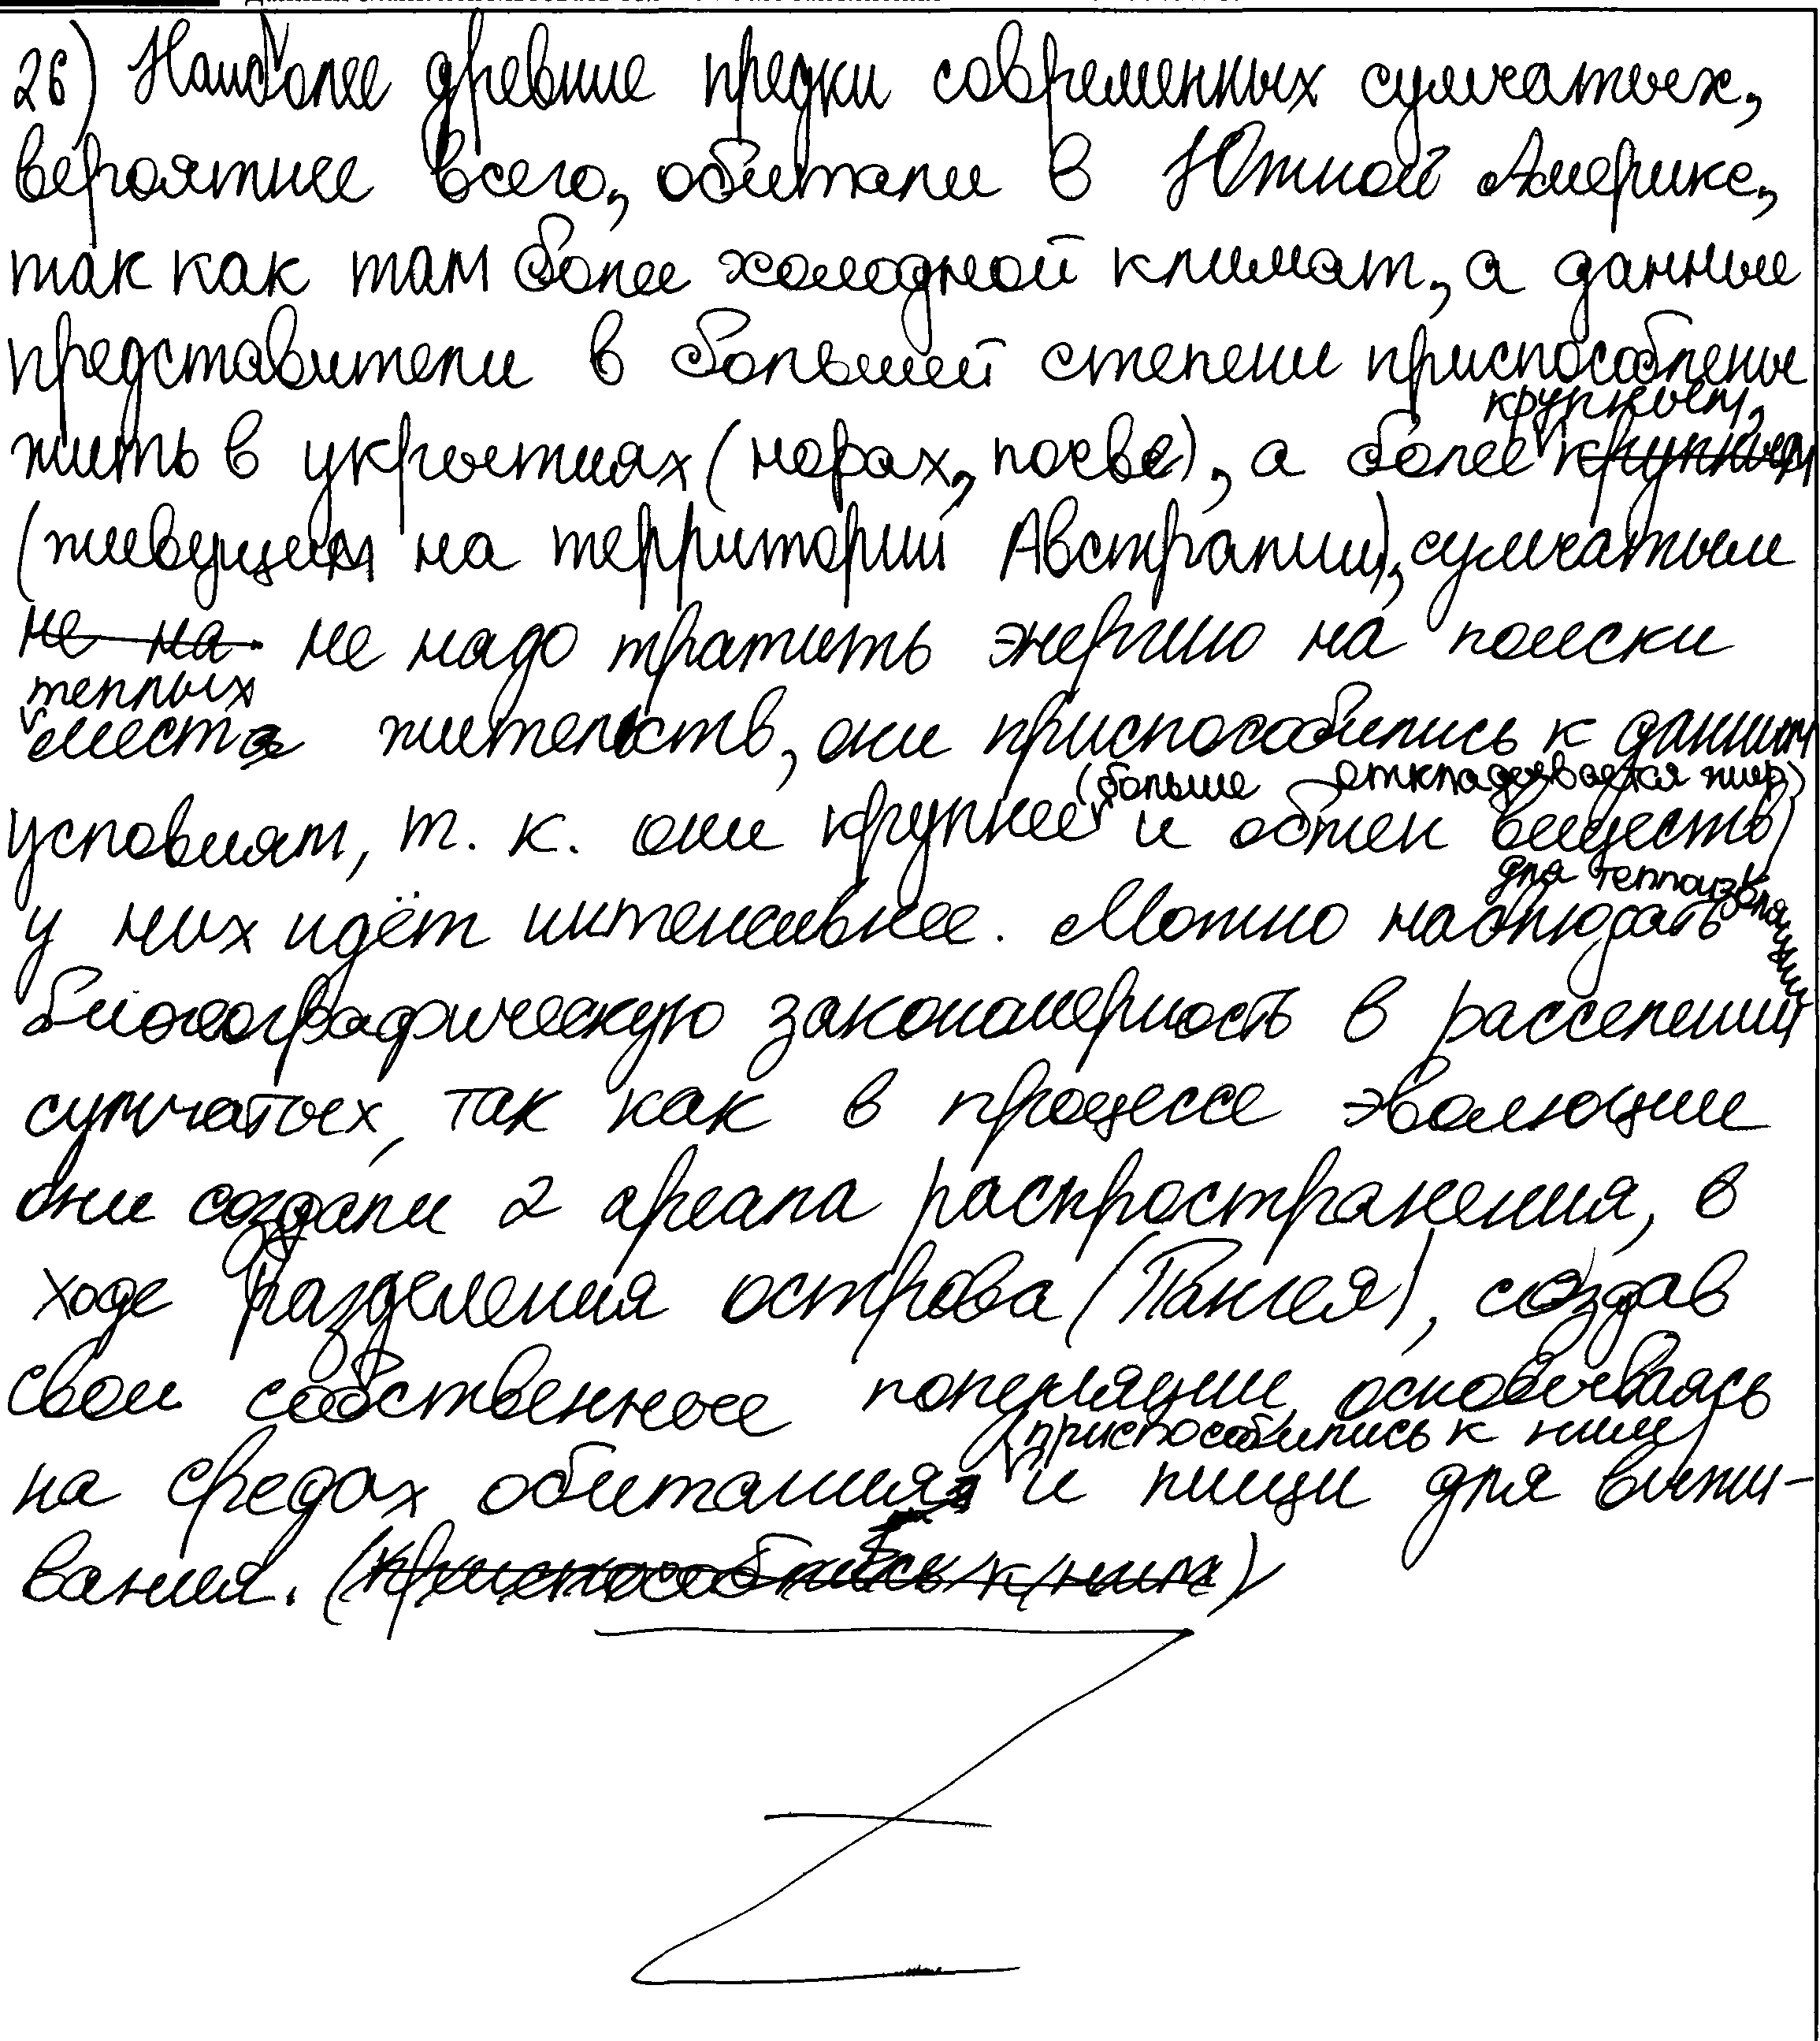 26) Наиболее древние предки современных сумчатых,
вероятнее всего, обитали в Южной Америке,
так как там более холодной климат, а данные
представители в большей степени приспособлены
жить в укрытиях (норах, почве), а более крупным,
(живущем на территории Австралии), сумчатым
не на не надо тратить энергию на поиски
теплых
мест жительств, они приспособились к данным
(больше откладывается жир)
условиям, т. к. они крупнее и обмен веществ
для теплоизоляции
у них идёт интенсивнее. Можно наблюдать
биогеографическую закономерность в расселении
сумчатых, так как в процессе эволюции
они создали 2 ареала распространения, в
ходе разделения острова (Пангея), создав
свои собственные популяции, основываясь
(приспособились к ним)
на средах обитания и пищи для выжи-
вания. (приспособились к ним)